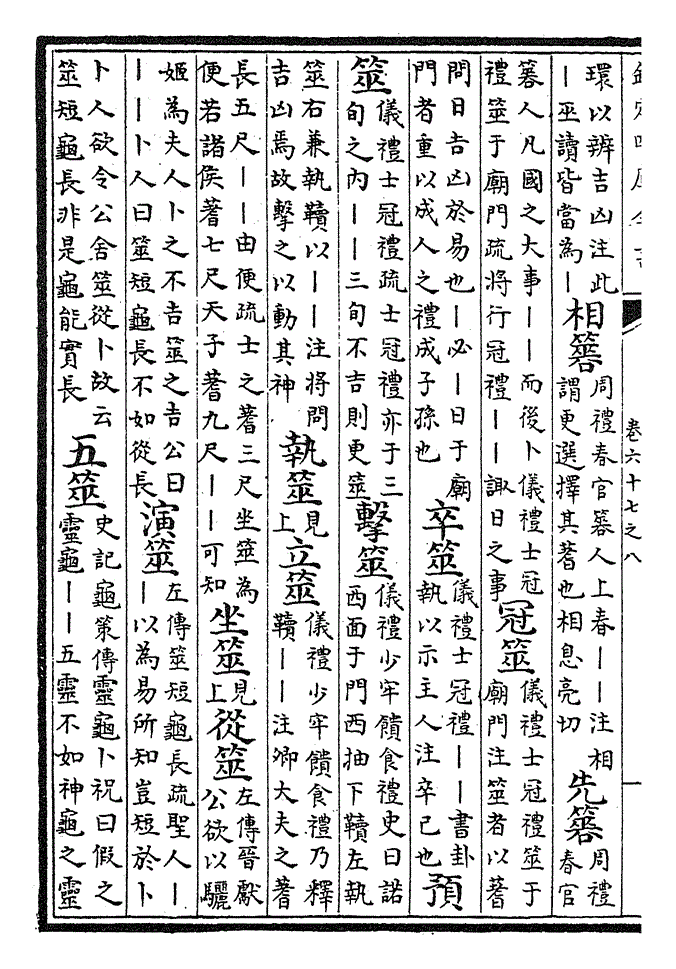 欽定四庫全書
卷六十七之八
一
環以辨吉凶注此
丨巫讀皆當為丨
相簭
周禮春官簭人上春丨丨注相
謂更選擇其蓍也相息亮切
先簭
周禮
春官
簭人凡國之大事丨丨而後卜儀禮士冠
禮筮于廟門疏將行冠禮丨丨諏日之事
冠筮
儀禮士冠禮筮于
廟門注筮者以蓍
問日吉凶於易也丨必丨日于廟
門者重以成人之禮成子孫也
卒筮
儀禮士冠禮丨丨書卦
執以示主人注卒已也
預
筮
儀禮士冠禮疏士冠禮亦于三
旬之內丨丨三旬不吉則更筮
擊筮
儀禮少牢饋食禮史曰諾
西面于門西抽下韇左執
筮右兼執韇以丨丨注將問
吉凶焉故擊之以動其神
執筮
見
上
立筮
儀禮少牢饋食禮乃釋
韇丨丨注卿大夫之蓍
長五尺丨丨由便疏士之蓍三尺坐筮為
便若諸侯蓍七尺天子蓍九尺丨丨可知
坐筮
見
上
從筮
左傳晉獻
公欲以驪
姬為夫人卜之不吉筮之吉公曰
丨丨卜人曰筮短龜長不如從長
演筮
左傳筮短龜長疏聖人丨
丨以為易所知豈短於卜
卜人欲令公舍筮從卜故云
筮短龜長非是龜能實長
五筮
史記龜策傳靈龜卜祝曰假之
靈龜丨丨五靈不如神龜之靈